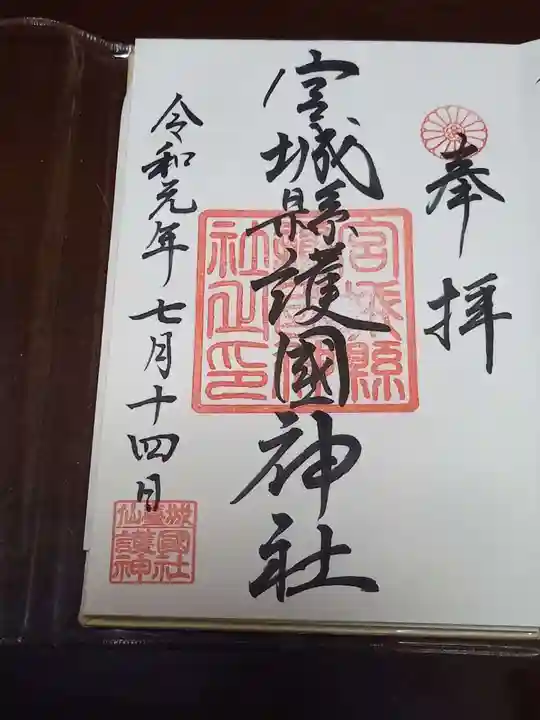 奉拝
宮城縣護國神社
宮城縣護國神社之印
令和元年七月十四日
仙臺城護國神社